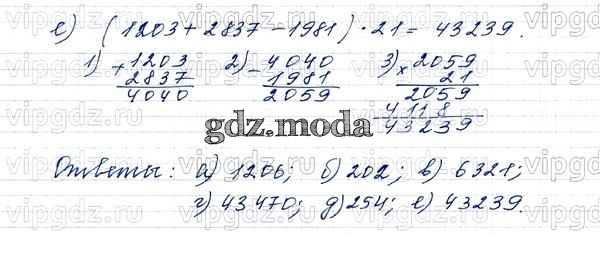 е) (1203+2837-1981)·21=43239.
1) +1203 2) -4040 3) ×2059
2837 1981 21
4040 2059 2059
4118
43239
gdz.moda
Ответы: а) 1206; б) 202; в) 6321;
г) 43470; д) 254; е) 43239.
vipgdz.ru